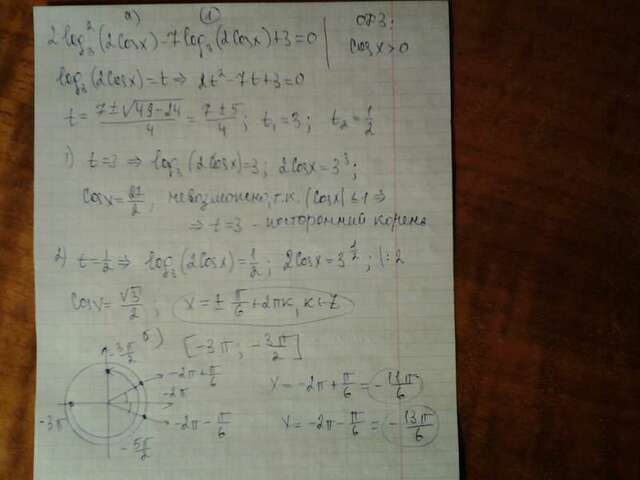 а) ①
2log₃²(2Cosx)-7log₃(2Cosx)+3=0 | ОДЗ:
Cosx>0
log₃(2Cosx)=t ⇒ 2t²-7t+3=0
t= (7±√(49-24))/4 = (7±5)/4; t₁=3; t₂=1/2
1) t=3 ⇒ log₃(2Cosx)=3; 2Cosx=3³;
Cosx=27/2; невозможно, т.к. |Cosx|≤1 ⇒
⇒ t=3 - посторонний корень
2) t=1/2 ⇒ log₃(2Cosx)=1/2; 2Cosx=3^(1/2); |:2
Cosx=√3/2; x=±π/6+2πk, k∈Z
б) [-3π; -3π/2]
-3π/2
-2π+π/6
-2π
-3π
-2π-π/6
-5π/2
x=-2π+π/6=-11π/6
x=-2π-π/6=-13π/6